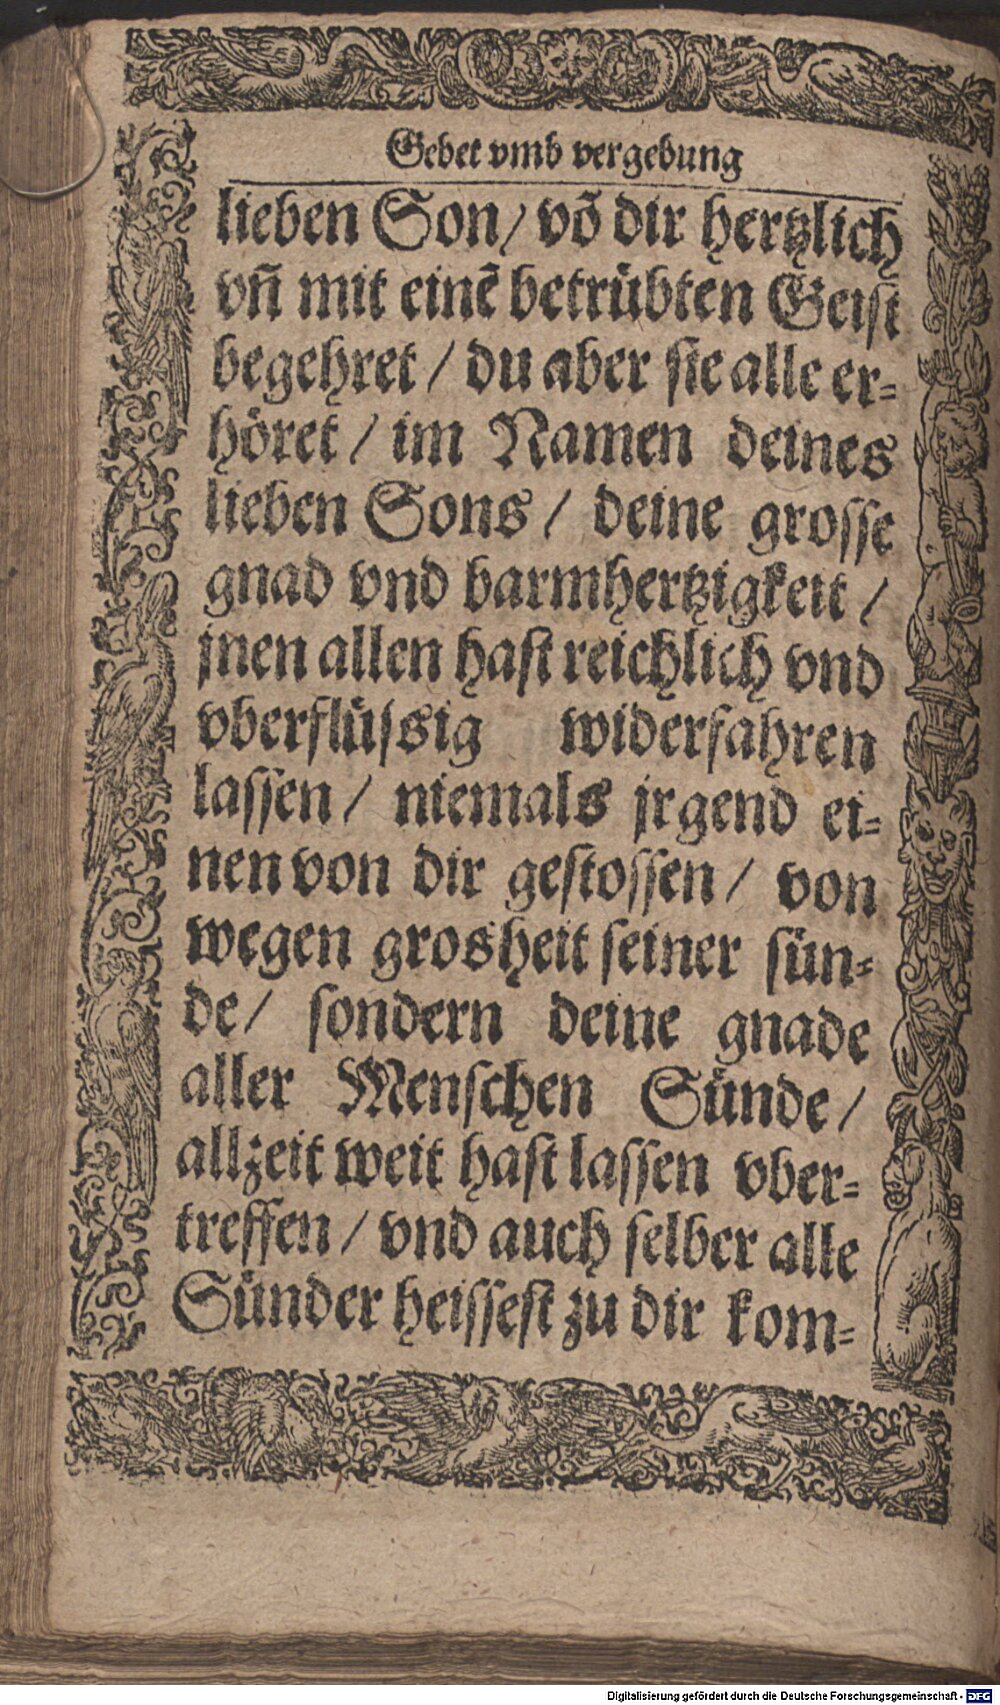 Gebet vmb vergebung
lieben Son/ võ dir hertzlich
vñ mit einẽ betrübten Geist
begehret / du aber sie alle er=
höret / im Namen deines
lieben Sons / deine grosse
gnad vnd barmhertzigkeit /
jnen allen hast reichlich vnd
vberflüssig widerfahren
lassen / niemals jrgend ei=
nen von dir gestossen / von
wegen grosheit seiner sün=
de/ sondern deine gnade
aller Menschen Sünde /
allzeit weit hast lassen vber=
treffen / vnd auch selber alle
Sünder heissest zu dir kom=
Digitalisierung gefördert durch die Deutsche Forschungsgemeinschaft - DFG